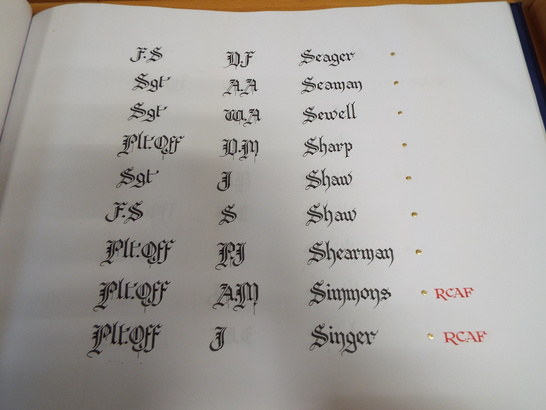 F.S D.F Seager
Sgt A.A Seaman
Sgt W.A Sewell
Plt.Off D.M Sharp
Sgt J Shaw
F.S S Shaw
Plt.Off P.J Shearman
Plt.Off A.M Simmons RCAF
Plt.Off J Singer RCAF